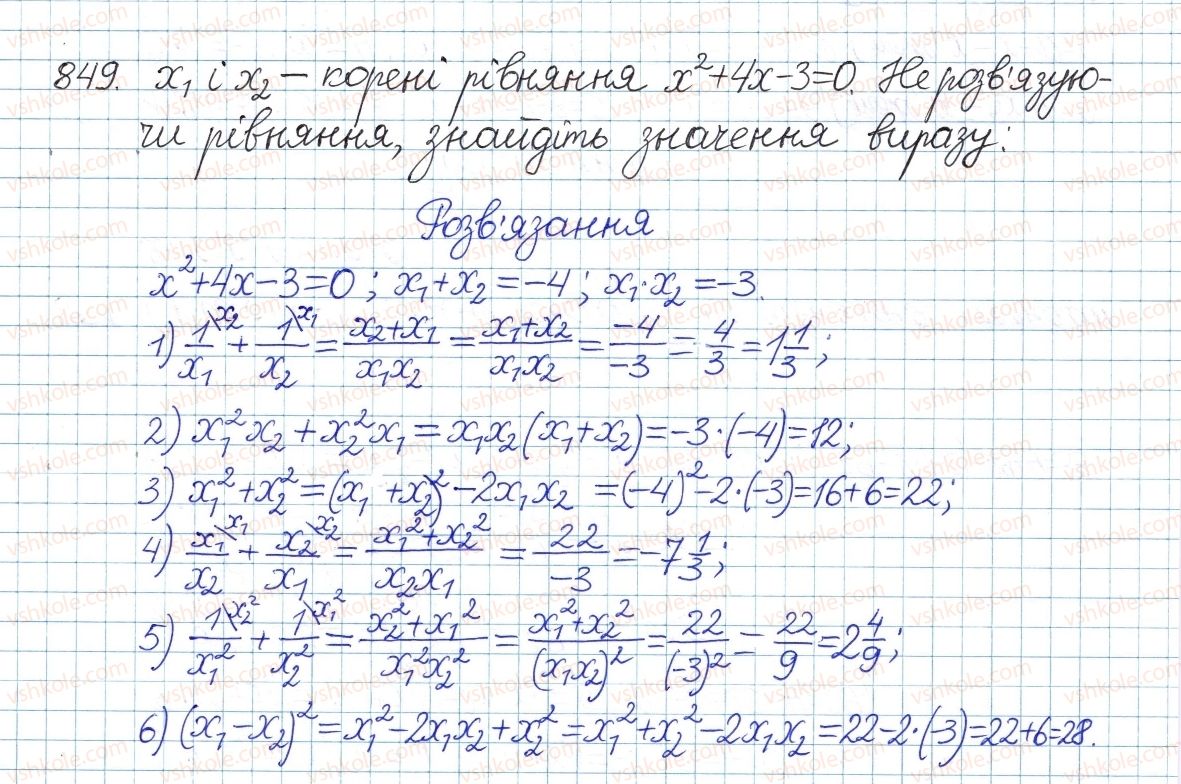 849. x₁ і x₂ – корені рівняння x²+4x-3=0. Не розв'язую-
чи рівняння, знайдіть значення виразу:
Розв'язання
x²+4x-3=0; x₁+x₂=-4; x₁·x₂=-3.
1) 1\x₂/x₁ + 1\x₁/x₂ = (x₂+x₁)/(x₁x₂) = (x₁+x₂)/(x₁x₂) = -4/-3 = 4/3 = 1 1/3;
2) x₁²x₂ + x₂²x₁ = x₁x₂(x₁+x₂) = -3·(-4) = 12;
3) x₁²+x₂² = (x₁+x₂)² - 2x₁x₂ = (-4)² - 2·(-3) = 16+6 = 22;
4) x₁\x₁/x₂ + x₂\x₂/x₁ = (x₁²+x₂²)/(x₂x₁) = 22/-3 = -7 1/3;
5) 1\x₂²/x₁² + 1\x₁²/x₂² = (x₂²+x₁²)/(x₁²x₂²) = (x₁²+x₂²)/(x₁x₂)² = 22/(-3)² = 22/9 = 2 4/9;
6) (x₁-x₂)² = x₁²-2x₁x₂+x₂² = x₁²+x₂²-2x₁x₂ = 22-2·(-3) = 22+6 = 28.
vshkole.com